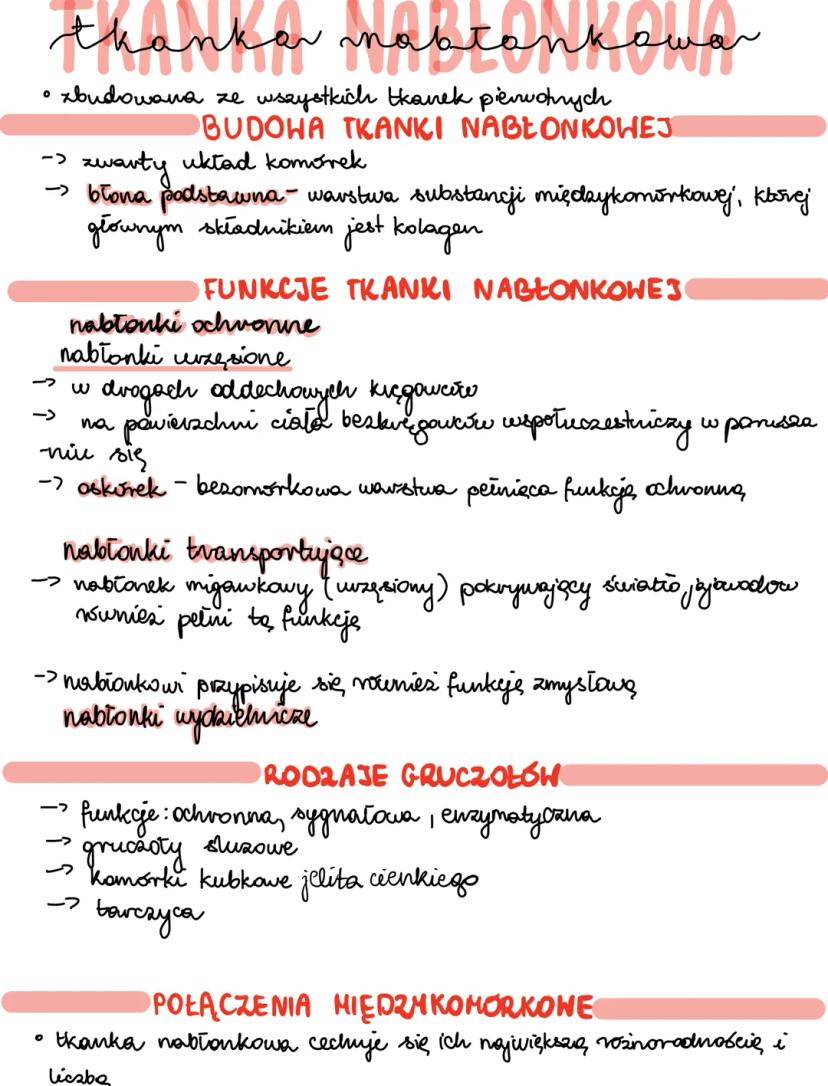 TKANKA NABŁONKOWA
tkanka nabłonkowa
• zbudowana ze wszystkich tkanek pierwotnych
BUDOWA TKANKI NABŁONKOWEJ
-> zwarty układ komórek
-> błona podstawna - warstwa substancji międzykomórkowej, której
głównym składnikiem jest kolagen
FUNKCJE TKANKI NABŁONKOWEJ
nabłonki ochronne
nabłonki urzęsione
-> w drogach oddechowych kręgowców
-> na powierzchni ciała bezkręgowców współuczestniczy w porusza
-niu się
-> oskórek - bezomórkowa warstwa pełniąca funkcję ochronną
nabłonki transportujące
-> nabłonek migawkowy (urzęsiony) pokrywający światło jajowodów
również pełni tę funkcję
-> nabłonkowi przypisuje się również funkcję zmysłową
nabłonki wydzielnicze
RODZAJE GRUCZOŁÓW
-> funkcje: ochronna, sygnałowa, enzymatyczna
-> gruczoły śluzowe
-> komórki kubkowe jelita cienkiego
-> tarczyca
POŁĄCZENIA MIĘDZYKOMÓRKOWE
• tkanka nabłonkowa cechuje się ich największą różnorodnością i
liczbą